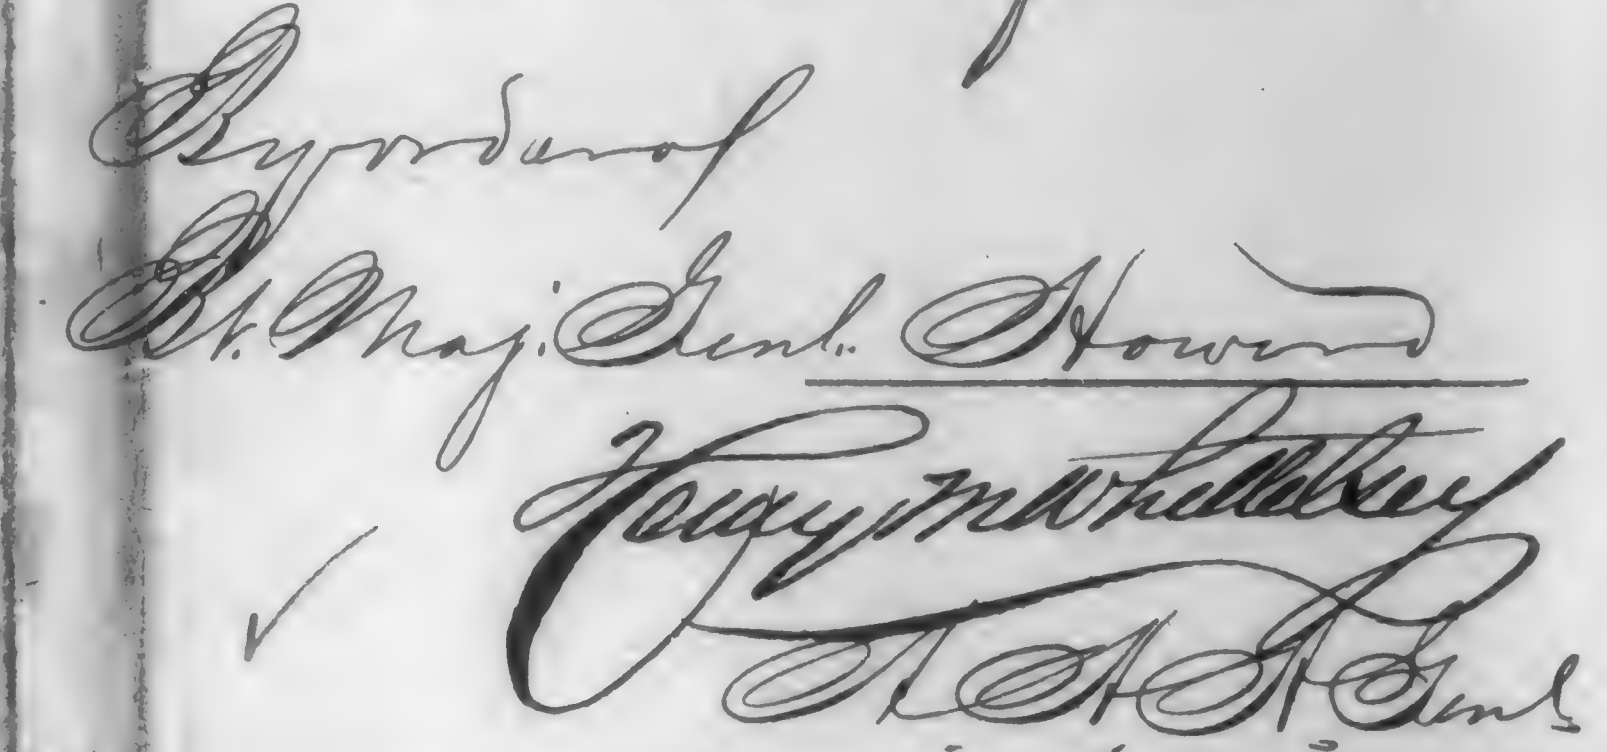 By order of
Bt. Maj: Genl. Howard
Henry M Whittelsey
A A A Genl